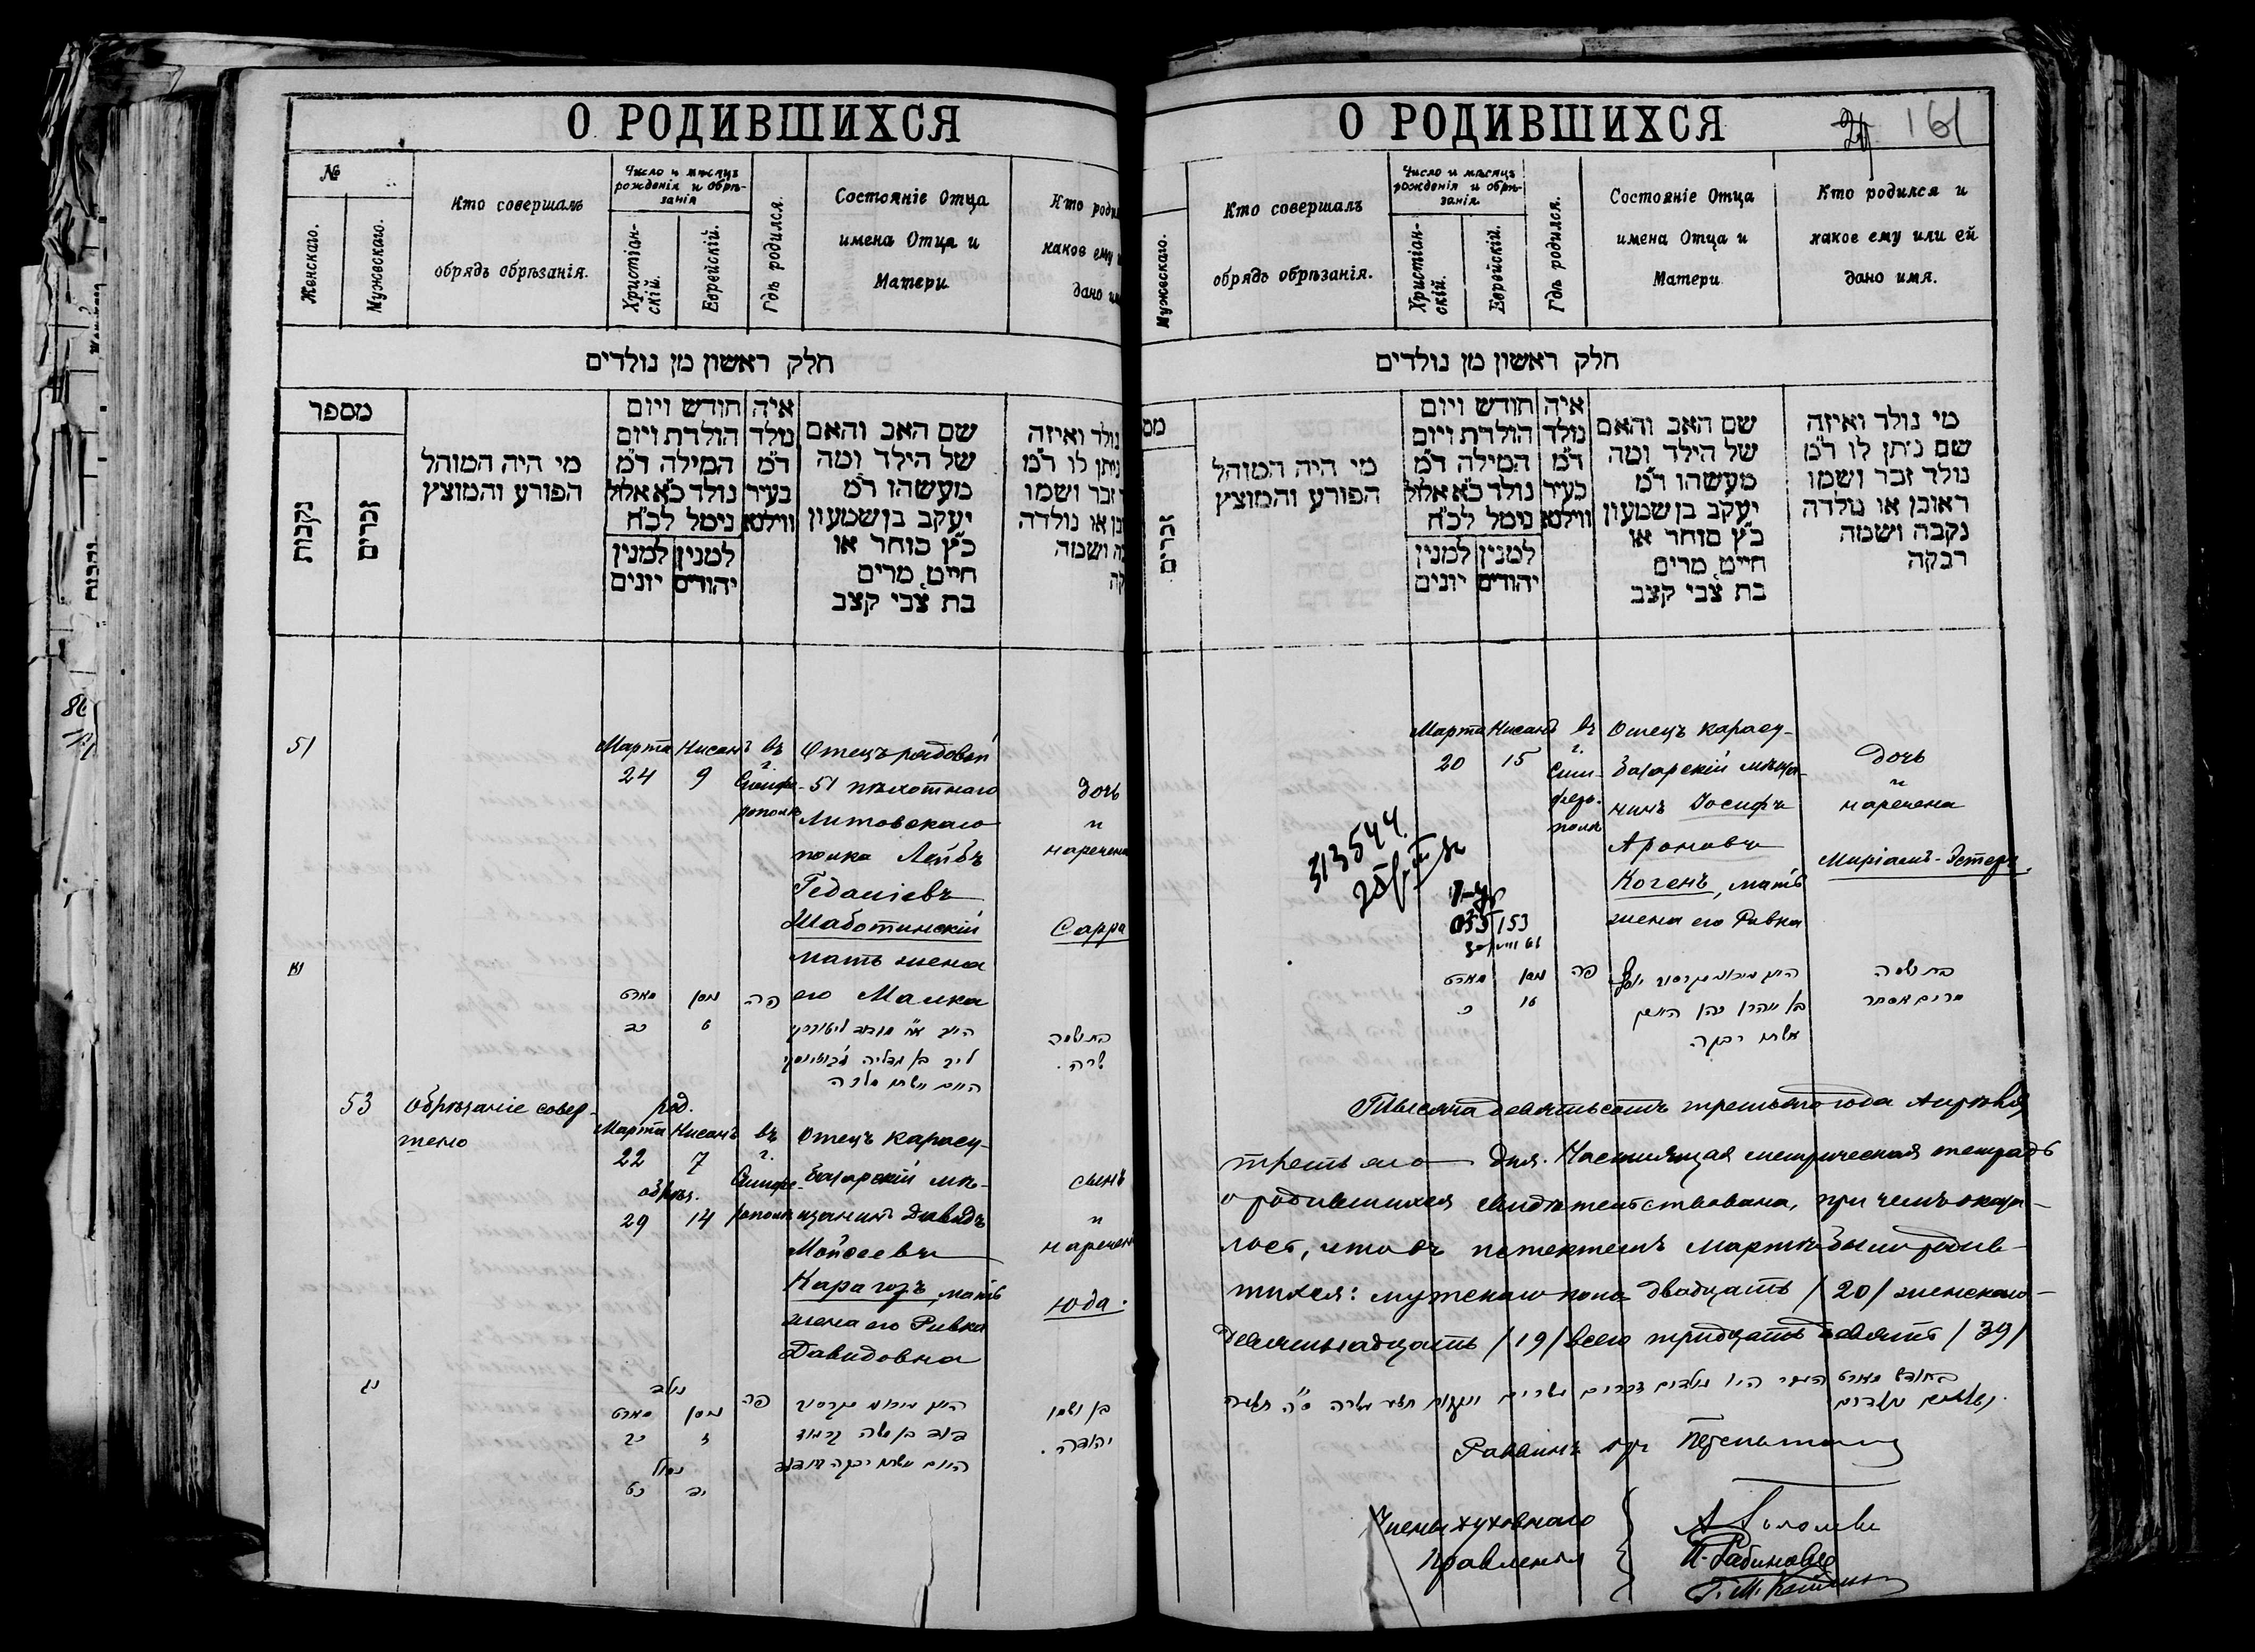 О РОДИВШИХСЯ
№
Женскаго.
Мужескаго.
Кто совершалъ
обрядъ обрѣзанія.
Число и мѣсяцъ
рожденія и обрѣ-
занія
Христіан-
скій.
Еврейскій.
Гдѣ родился.
Состояніе Отца
имена Отца и
Матери
Кто роди
какое ему
дано им
חלק ראשון מן נולדים
מספר
נקבות
זכרים
מי היה המוהל
הפורע והמוצץ
חודש ויום
הולדת ויום
המילה ד"מ
נולד כ"א אלול
נימל לכ"ח
למנין למנין
יהודים יונים
איה
נולד
ד"מ
בעיר
ווילנא
שם האב והאם
של הילד ומה
מעשהו ד"מ
יעקב בן שמעון
כ"ץ סוחר או
חייט מרים
בת צבי קצב
נולד ואיזה
ניתן לו ד"מ
זכר ושמו
או נולדה
ושמה
51
Марта Нисанъ
24 9
въ
г.
Симфе-
рополѣ
Отецъ рядовой
51 пѣхотнаго
Литовскаго
полка Лейбъ
Гедаліевъ
Шаботинскій
мать жена
его Малка
дочь
и
наречена
Сарра
נא
מארט ניסן
כד ט
פה
ליב בן גדליה
בת ושמה
שרה.
53
Обрѣзаніе совер-
шено
род.
Марта Нисанъ
22 7
обрѣз.
29 14
въ
г.
Симфе-
рополѣ
Отецъ карасу-
базарскій мѣ-
щанинъ Давидъ
Мойсеевъ
Карагозъ, мать
жена его Ривка
Давидовна
сынъ
и
наречен
Юда.
נג
נולד
מארט ניסן
כב ז
נימול
כט יד
פה
דוד בן משה
בן ושמו
יהודה.
О РОДИВШИХСЯ
161
Мужескаго.
Кто совершалъ
обрядъ обрѣзанія.
Число и мѣсяцъ
рожденія и обрѣ-
занія
Христіан-
скій.
Еврейскій.
Гдѣ родился.
Состояніе Отца
имена Отца и
Матери
Кто родился и
какое ему или ей
дано имя.
חלק ראשון מן נולדים
זכרים
מי היה המוהל
הפורע והמוצץ
חודש ויום
הולדת ויום
המילה ד"מ
נולד כ"א אלול
נימל לכ"ח
למנין למנין
יהודים יונים
איה
נולד
ד"מ
בעיר
ווילנא
שם האב והאם
של הילד ומה
מעשהו ד"מ
יעקב בן שמעון
כ"ץ סוחר או
חייט מרים
בת צבי קצב
מי נולד ואיזה
שם ניתן לו ד"מ
נולד זכר ושמו
ראובן או נולדה
נקבה ושמה
רבקה
Марта Нисанъ
20 15
въ
г.
Сим-
феро-
полѣ
Отецъ карасу-
базарскій мѣща-
нинъ Іосифъ
Ароновъ
Когенъ, мать
жена его Ривка
дочь
и
наречена
Миріамъ-Эстеръ.
313544
153
מארט ניסן
כ טו
פה
בן אהרן כהן
אשתו רבקה
בת ושמה
מרים אסתר
Тысяча девятьсотъ третьяго года Апрѣля
третьяго дня. Настоящая метрическая тетрадь
о родившихся свидѣтельствована, при чемъ оказа-
лось, что въ истекшемъ Мартѣ было родив-
шихся: мужскаго пола двадцать /20/ женскаго
девятнадцать /19/ всего тридцать девять /39/
Раввинъ
Члены духовнаго
Правленія